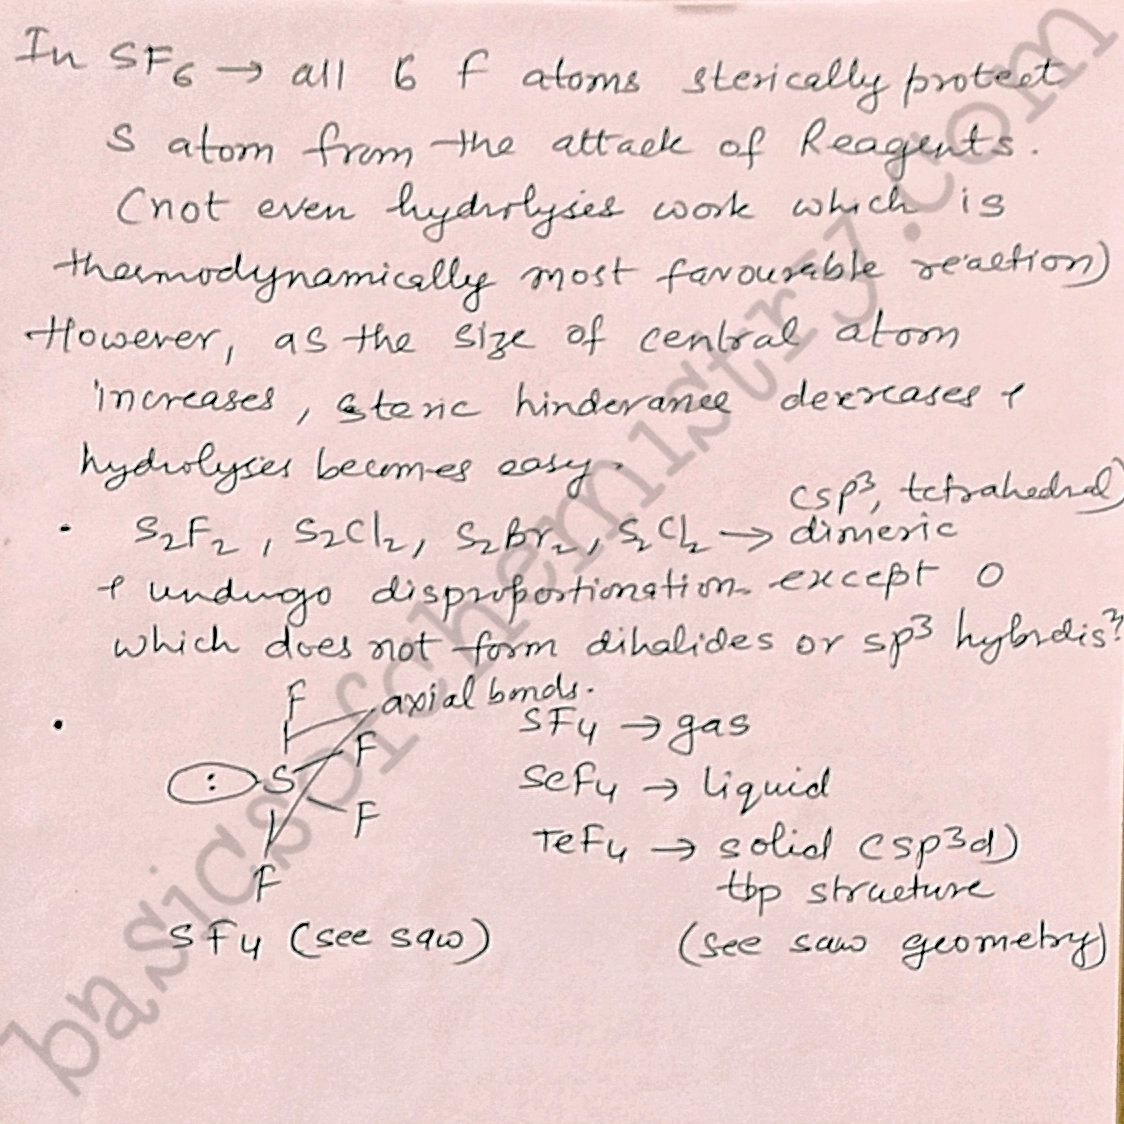 In SF6 → all 6 F atoms sterically protect
S atom from the attack of Reagents.
(not even hydrolyses work which is
thermodynamically most favourable reaction)
However, as the size of central atom
increases, steric hinderance decreases &
hydrolyses becomes easy.
(sp³, tetrahedral)
• S2F2, S2Cl2, S2Br2, S2Cl2 → dimeric
& undergo disproportionation except O
which does not form dihalides or sp³ hybridisⁿ
F axial bonds.
• SF4 → gas
F
: S SeF4 → liquid
F
TeF4 → solid (sp³d)
F tbp structure
SF4 (see saw) (see saw geometry)
basicsofchemistry.com